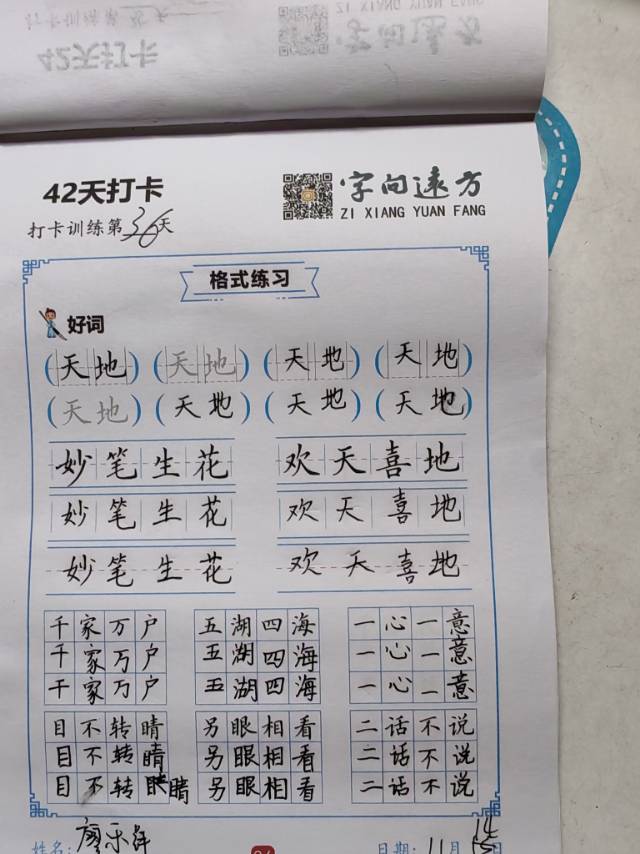 42天打卡
打卡训练第36天
字向远方
ZI XIANG YUAN FANG
格式练习
好词
(天地) (天地) (天地) (天地)
(天地) (天地) (天地) (天地)
妙笔生花 欢天喜地
妙笔生花 欢天喜地
妙笔生花 欢天喜地
千家万户 五湖四海 一心一意
千家万户 五湖四海 一心一意
千家万户 五湖四海 一心一意
目不转睛 另眼相看 二话不说
目不转睛 另眼相看 二话不说
目不转睛 另眼相看 二话不说
姓名: 廖乐 日期: 11月 日